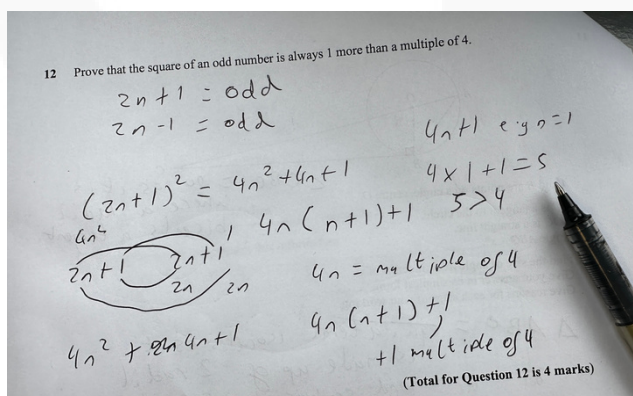 12 Prove that the square of an odd number is always 1 more than a multiple of 4.
2n+1 = odd
2n-1 = odd
(2n+1)² = 4n²+4n+1
4n(n+1)+1
4n+1 e.g n=1
4x1+1=5
5>4
2n+1 2n+1
1
2n 2n
4n = multiple of 4
4n² + 4n+1
4n(n+1)+1
+1 multiple of 4
(Total for Question 12 is 4 marks)